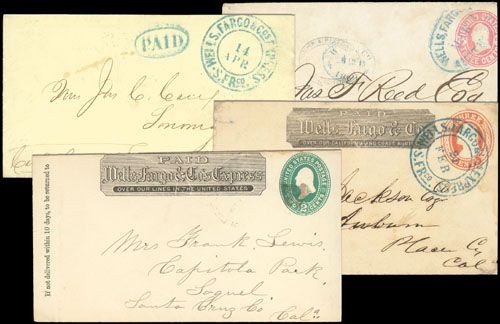 PAID
WELLS, FARGO & CO'S EXPRESS
14
APR
S. FRCO.
Mrs Jas C. Cary
Sonoma
WELLS, FARGO
THREE CENTS
Jas F Reed Esq
PAID
Wells, Fargo & Co.
OVER OUR CALIFORNIA AND COAST ROUTES
WELLS, FARGO & CO'S EXPRESS
FEB
Jackson Esq
Auburn
Place Co
Cal
If not delivered within 10 days, to be returned to
PAID
Wells, Fargo & Co's Express
OVER OUR LINES IN THE UNITED STATES
UNITED STATES POSTAGE
2 CENTS 2
Mrs Frank Lewis,
Capitola Park,
Soquel
Santa Cruz Co. Cala.